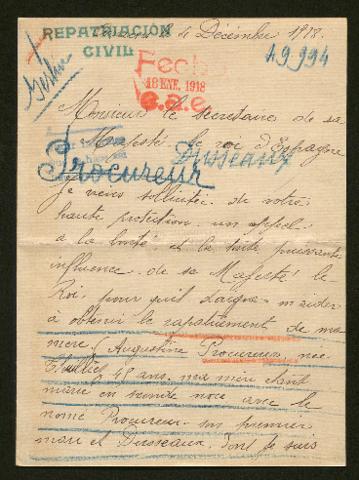 REPATRIACIÓN
CIVIL
4 Décembre 1918
49994
Fecha
18 ENE. 1918
Monsieur le secretaire de sa
Majesté le roi d'Espagne
Procureur Dusseaux
Je viens sollicitée de votre
haute protection un appel
a la bonté et la toute puissante
influence de sa Majesté le
Roi pour qu'il daigne m'aider
à obtenir le rapatriement de ma
mere Augustine Procureur nee
48 ans, ma mère étant
marie en seconde noce avec le
nomé Procureur son premier
mari et Dusseaux dont je suis